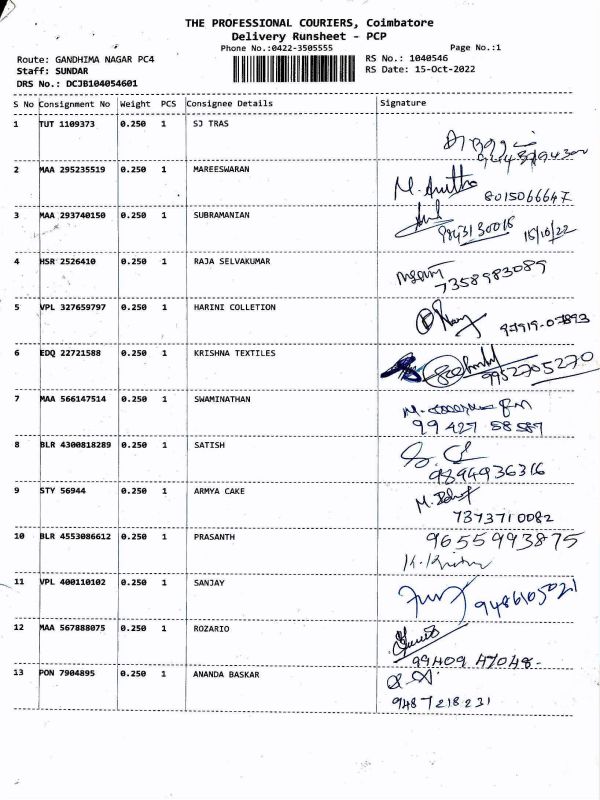 THE PROFESSIONAL COURIERS, Coimbatore
Delivery Runsheet - PCP
Phone No.:0422-3505555 Page No.:1
Route: GANDHIMA NAGAR PC4 RS No.: 1040546
Staff: SUNDAR RS Date: 15-Oct-2022
DRS No.: DCJB104054601
S No Consignment No Weight PCS Consignee Details Signature
1 TUT 1109373 0.250 1 SJ TRAS
2 MAA 295235519 0.250 1 MAREESWARAN
8015066647
3 MAA 293740150 0.250 1 SUBRAMANIAN
9843130016 15/10/22
4 HSR 2526410 0.250 1 RAJA SELVAKUMAR
7358983089
5 VPL 327659797 0.250 1 HARINI COLLETION
97919-07893
6 EDQ 22721588 0.250 1 KRISHNA TEXTILES
9952705270
7 MAA 566147514 0.250 1 SWAMINATHAN
99427 58587
8 BLR 4300818289 0.250 1 SATISH
9894936316
9 STY 56944 0.250 1 ARMYA CAKE
7373710082
10 BLR 4553086612 0.250 1 PRASANTH 9655993875
11 VPL 400110102 0.250 1 SANJAY
9486105021
12 MAA 567888075 0.250 1 ROZARIO
99409 47048-
13 PON 7904895 0.250 1 ANANDA BASKAR
9487218231